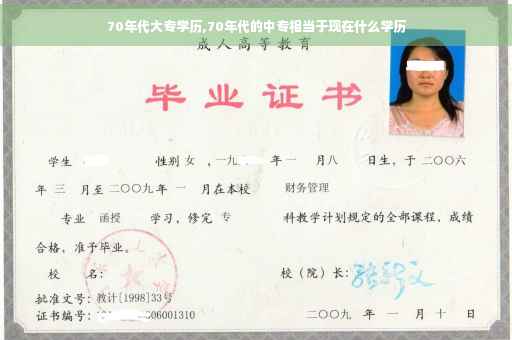 70年代大专学历,70年代的中专相当于现在什么学历
成人高等教育
毕业证书
学生 性别 女 ,一九 年 一 月 八 日生，于 二〇〇六
年 三 月至 二〇〇九 年 一 月在本校 财务管理
专业 函授 学习，修完 专 科教学计划规定的全部课程，成绩
合格，准予毕业。
校 名： 校（院）长：
批准文号：教计[1998]33号
证书编号： 06001310 二〇〇九 年 一 月 十 日